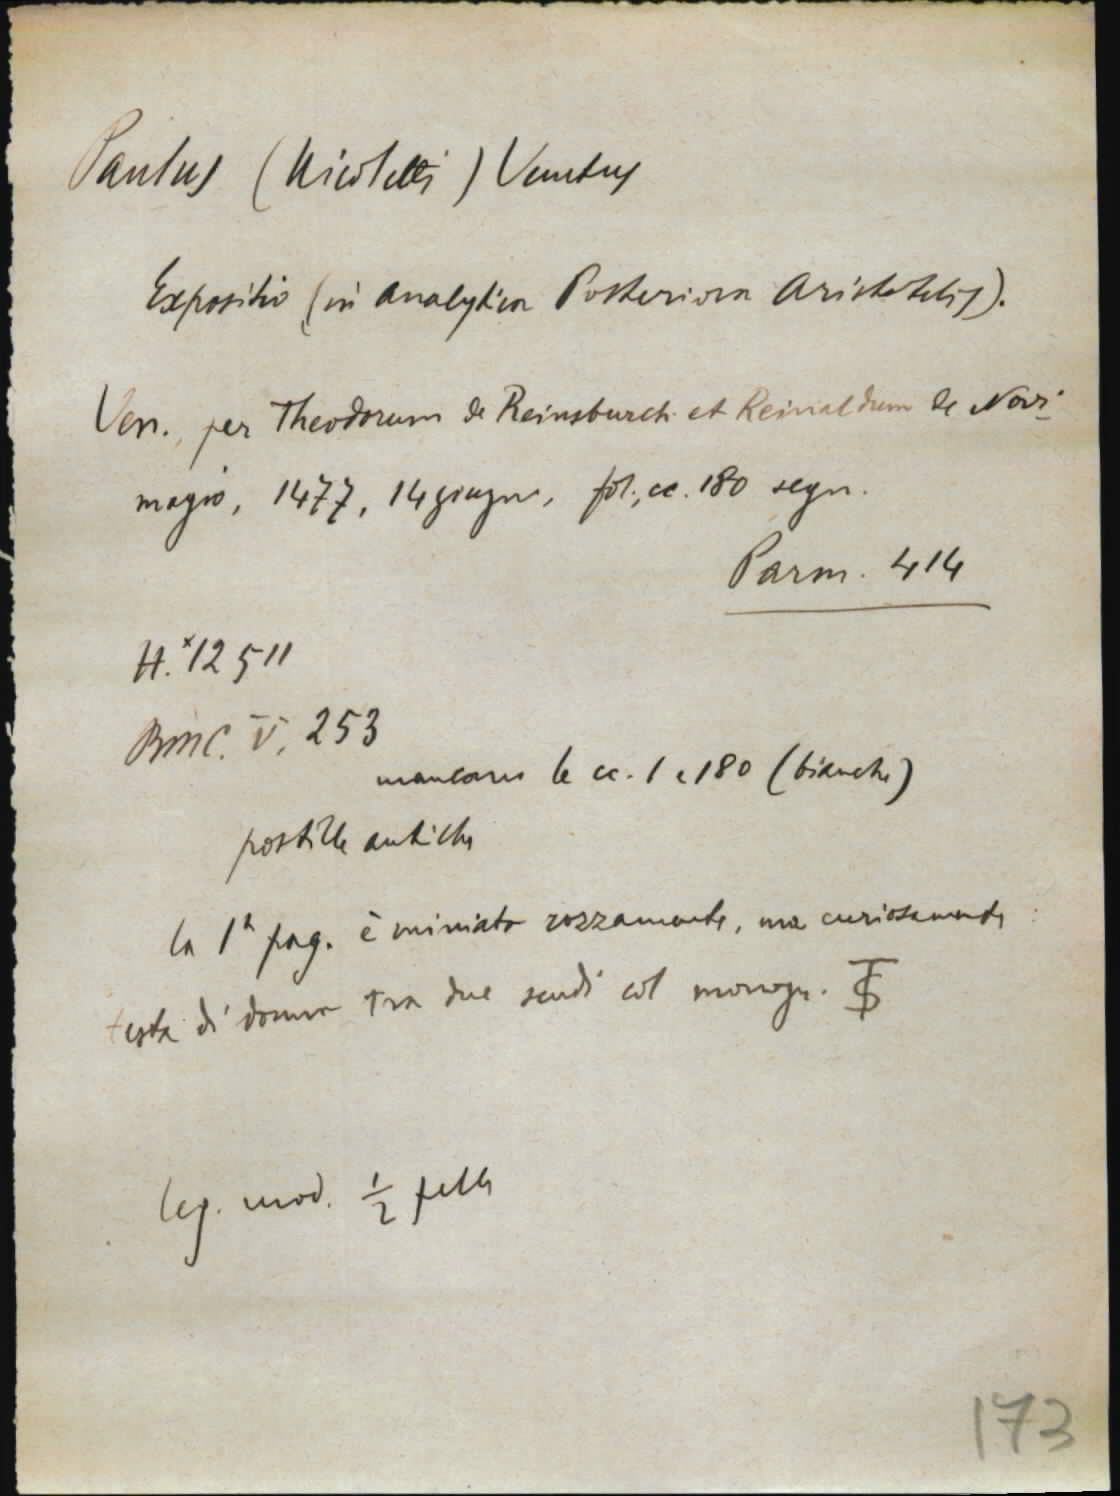 Paulus (Nicoletti) Venetus
Expositio (in Analytica Posteriora Aristotelis).
Ven., per Theodorum de Reinsburch et Reinaldum de Novi
magio, 1477, 14 giugno, fol., cc. 180 segn.
Parm. 414
H.* 12511
BMC. V, 253
mancano le cc. 1 e 180 (bianche)
postille antiche
la 1ª pag. è miniata rozzamente, ma curiosamente :
testa di donna tra due scudi col monogr.
leg. mod. 1/2 pelle
173